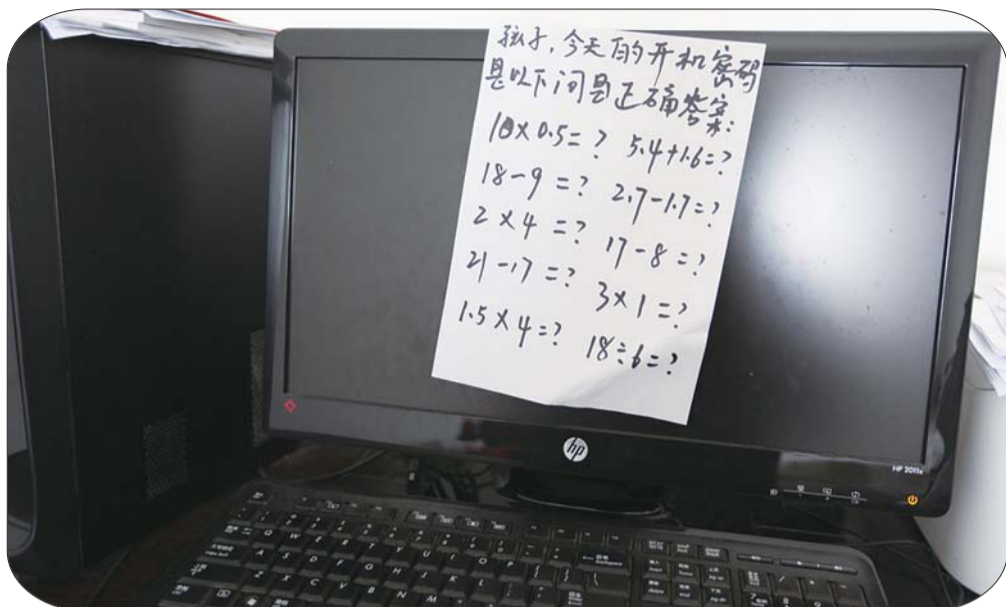 孩子,今天的开机密码
是以下问题正确答案:
10×0.5=? 5.4+1.6=?
18-9=? 2.7-1.7=?
2×4=? 17-8=?
21-17=? 3×1=?
1.5×4=? 18÷6=?
hp
HP 2011x